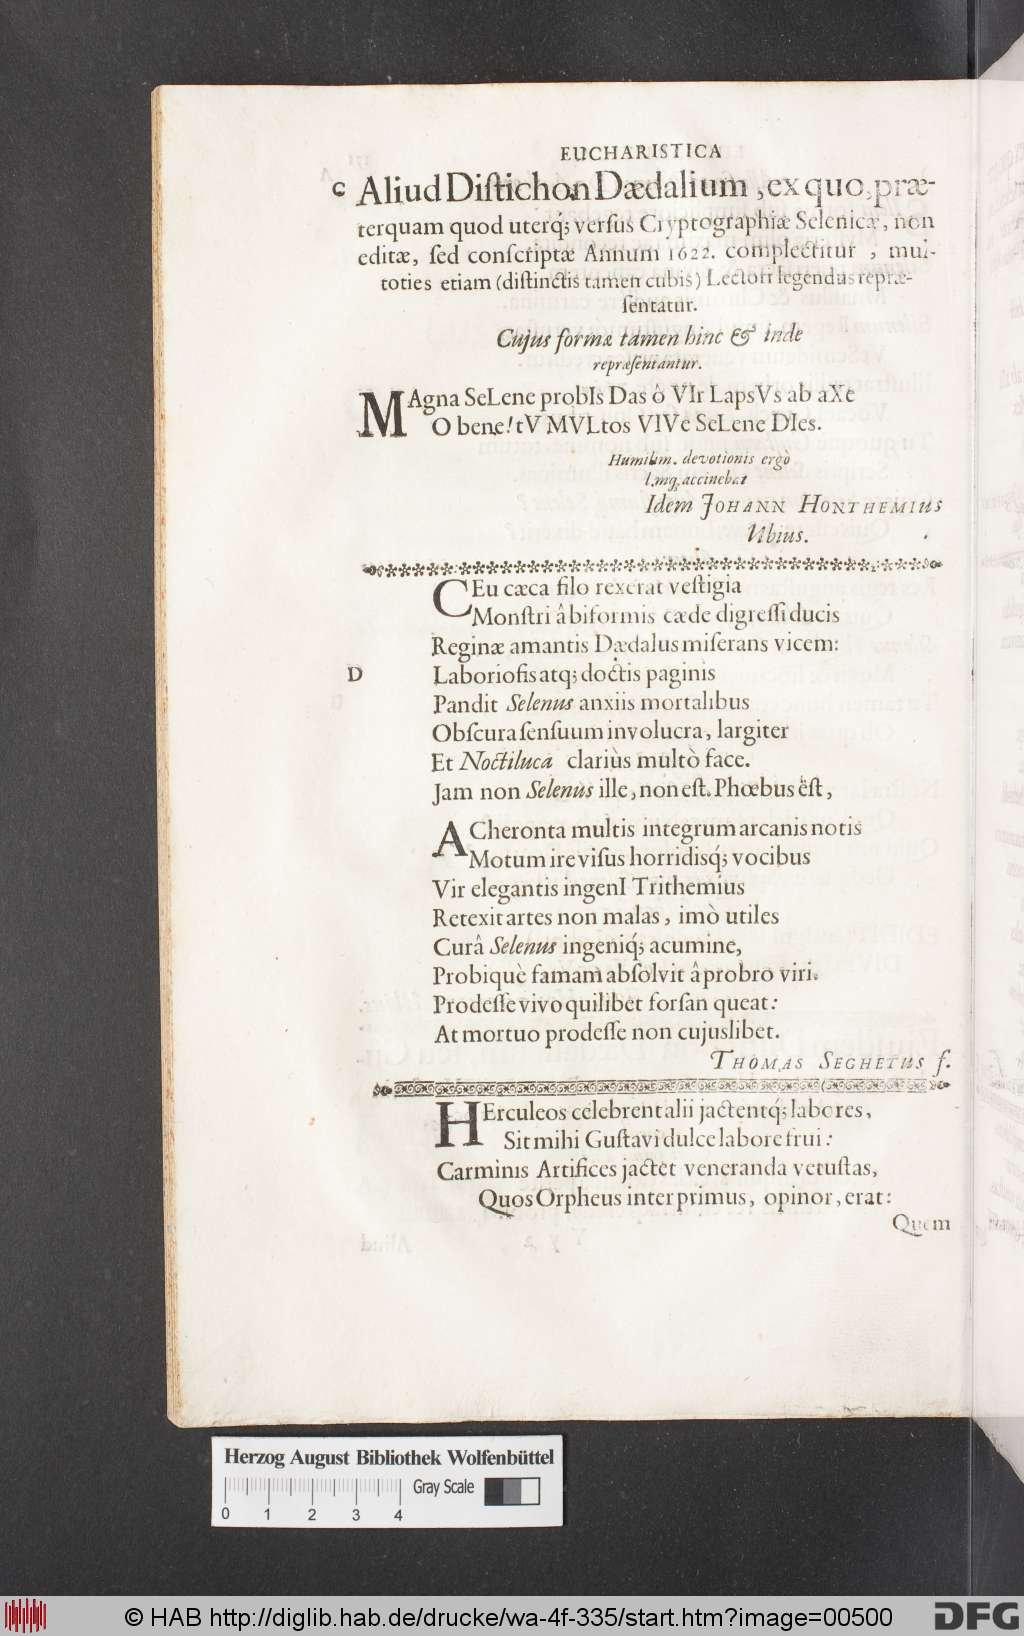 EUCHARISTICA
C Aliud Diſtichon Dædalium, ex quo, præ-
terquam quod uterq; verſus Cryptographiæ Selenicæ, non
editæ, ſed conſcriptæ Annum 1622. complectitur, mul-
toties etiam (diſtinctis tamen cubis) Lectori legendus repræ-
ſentatur.
Cujus formæ tamen hinc & inde
repræſentantur.
MAgna SeLene probIs Das ò VIr LapsVs ab aXe
O bene! tV MVLtos VIVe SeLene DIes.
Humilim. devotionis ergò
l.mq; accinebat
Idem JOHANN HONTHEMIUS
Ubius.
CEu cæca filo rexerat veſtigia
Monſtri â biformis cæde digreſſi ducis
Reginæ amantis Dædalus miſerans vicem:
D Laborioſis atq; doctis paginis
Pandit Selenus anxiis mortalibus
Obſcura ſenſuum involucra, largiter
Et Noctiluca clariùs multò face.
Jam non Selenus ille, non eſt. Phœbus eſt,
ACheronta multis integrum arcanis notis
Motum ire viſus horridisq́; vocibus
Vir elegantis ingenI Trithemius
Retexit artes non malas, imò utiles
Curâ Selenus ingeniq́; acumine,
Probiquè famam abſolvit â probro viri.
Prodeſſe vivo quilibet forſan queat:
At mortuo prodeſſe non cujuslibet.
THOMAS SEGHETUS f.
HErculeos celebrent alii jactentq́; labores,
Sit mihi Guſtavi dulce labore frui:
Carminis Artifices jactet veneranda vetuſtas,
Quos Orpheus inter primus, opinor, erat:
Quem
Herzog August Bibliothek Wolfenbüttel
Gray Scale
0 1 2 3 4
© HAB http://diglib.hab.de/drucke/wa-4f-335/start.htm?image=00500
DFG